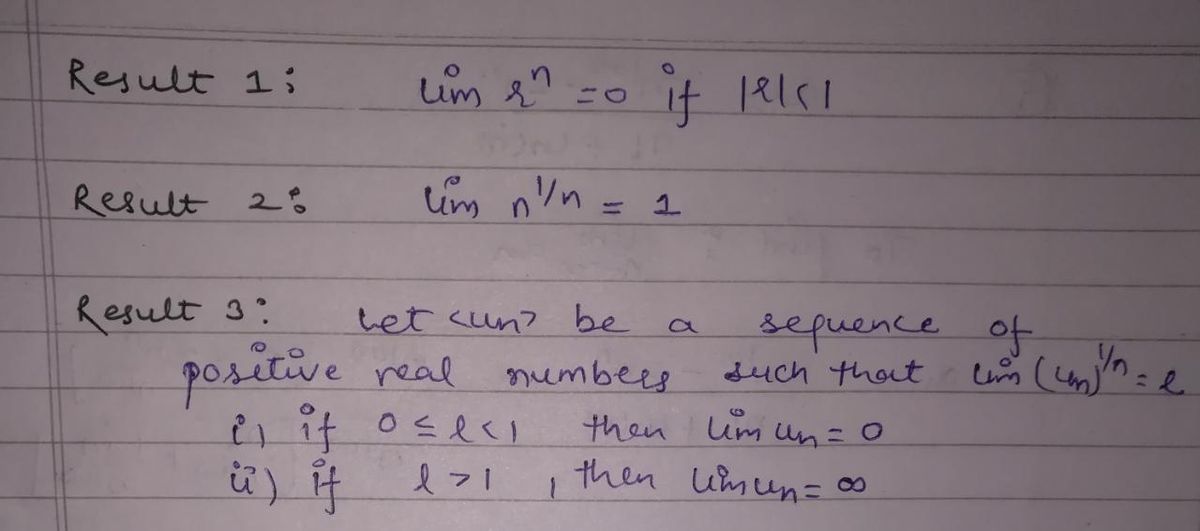 Result 1: lim r^n = 0 if |r|<1
Result 2: lim n^1/n = 1
Result 3: Let <un> be a sequence of
positive real numbers such that lim (un)^1/n = l
i) if 0 ≤ l < 1 then lim un = 0
ii) if l > 1 , then lim un = ∞